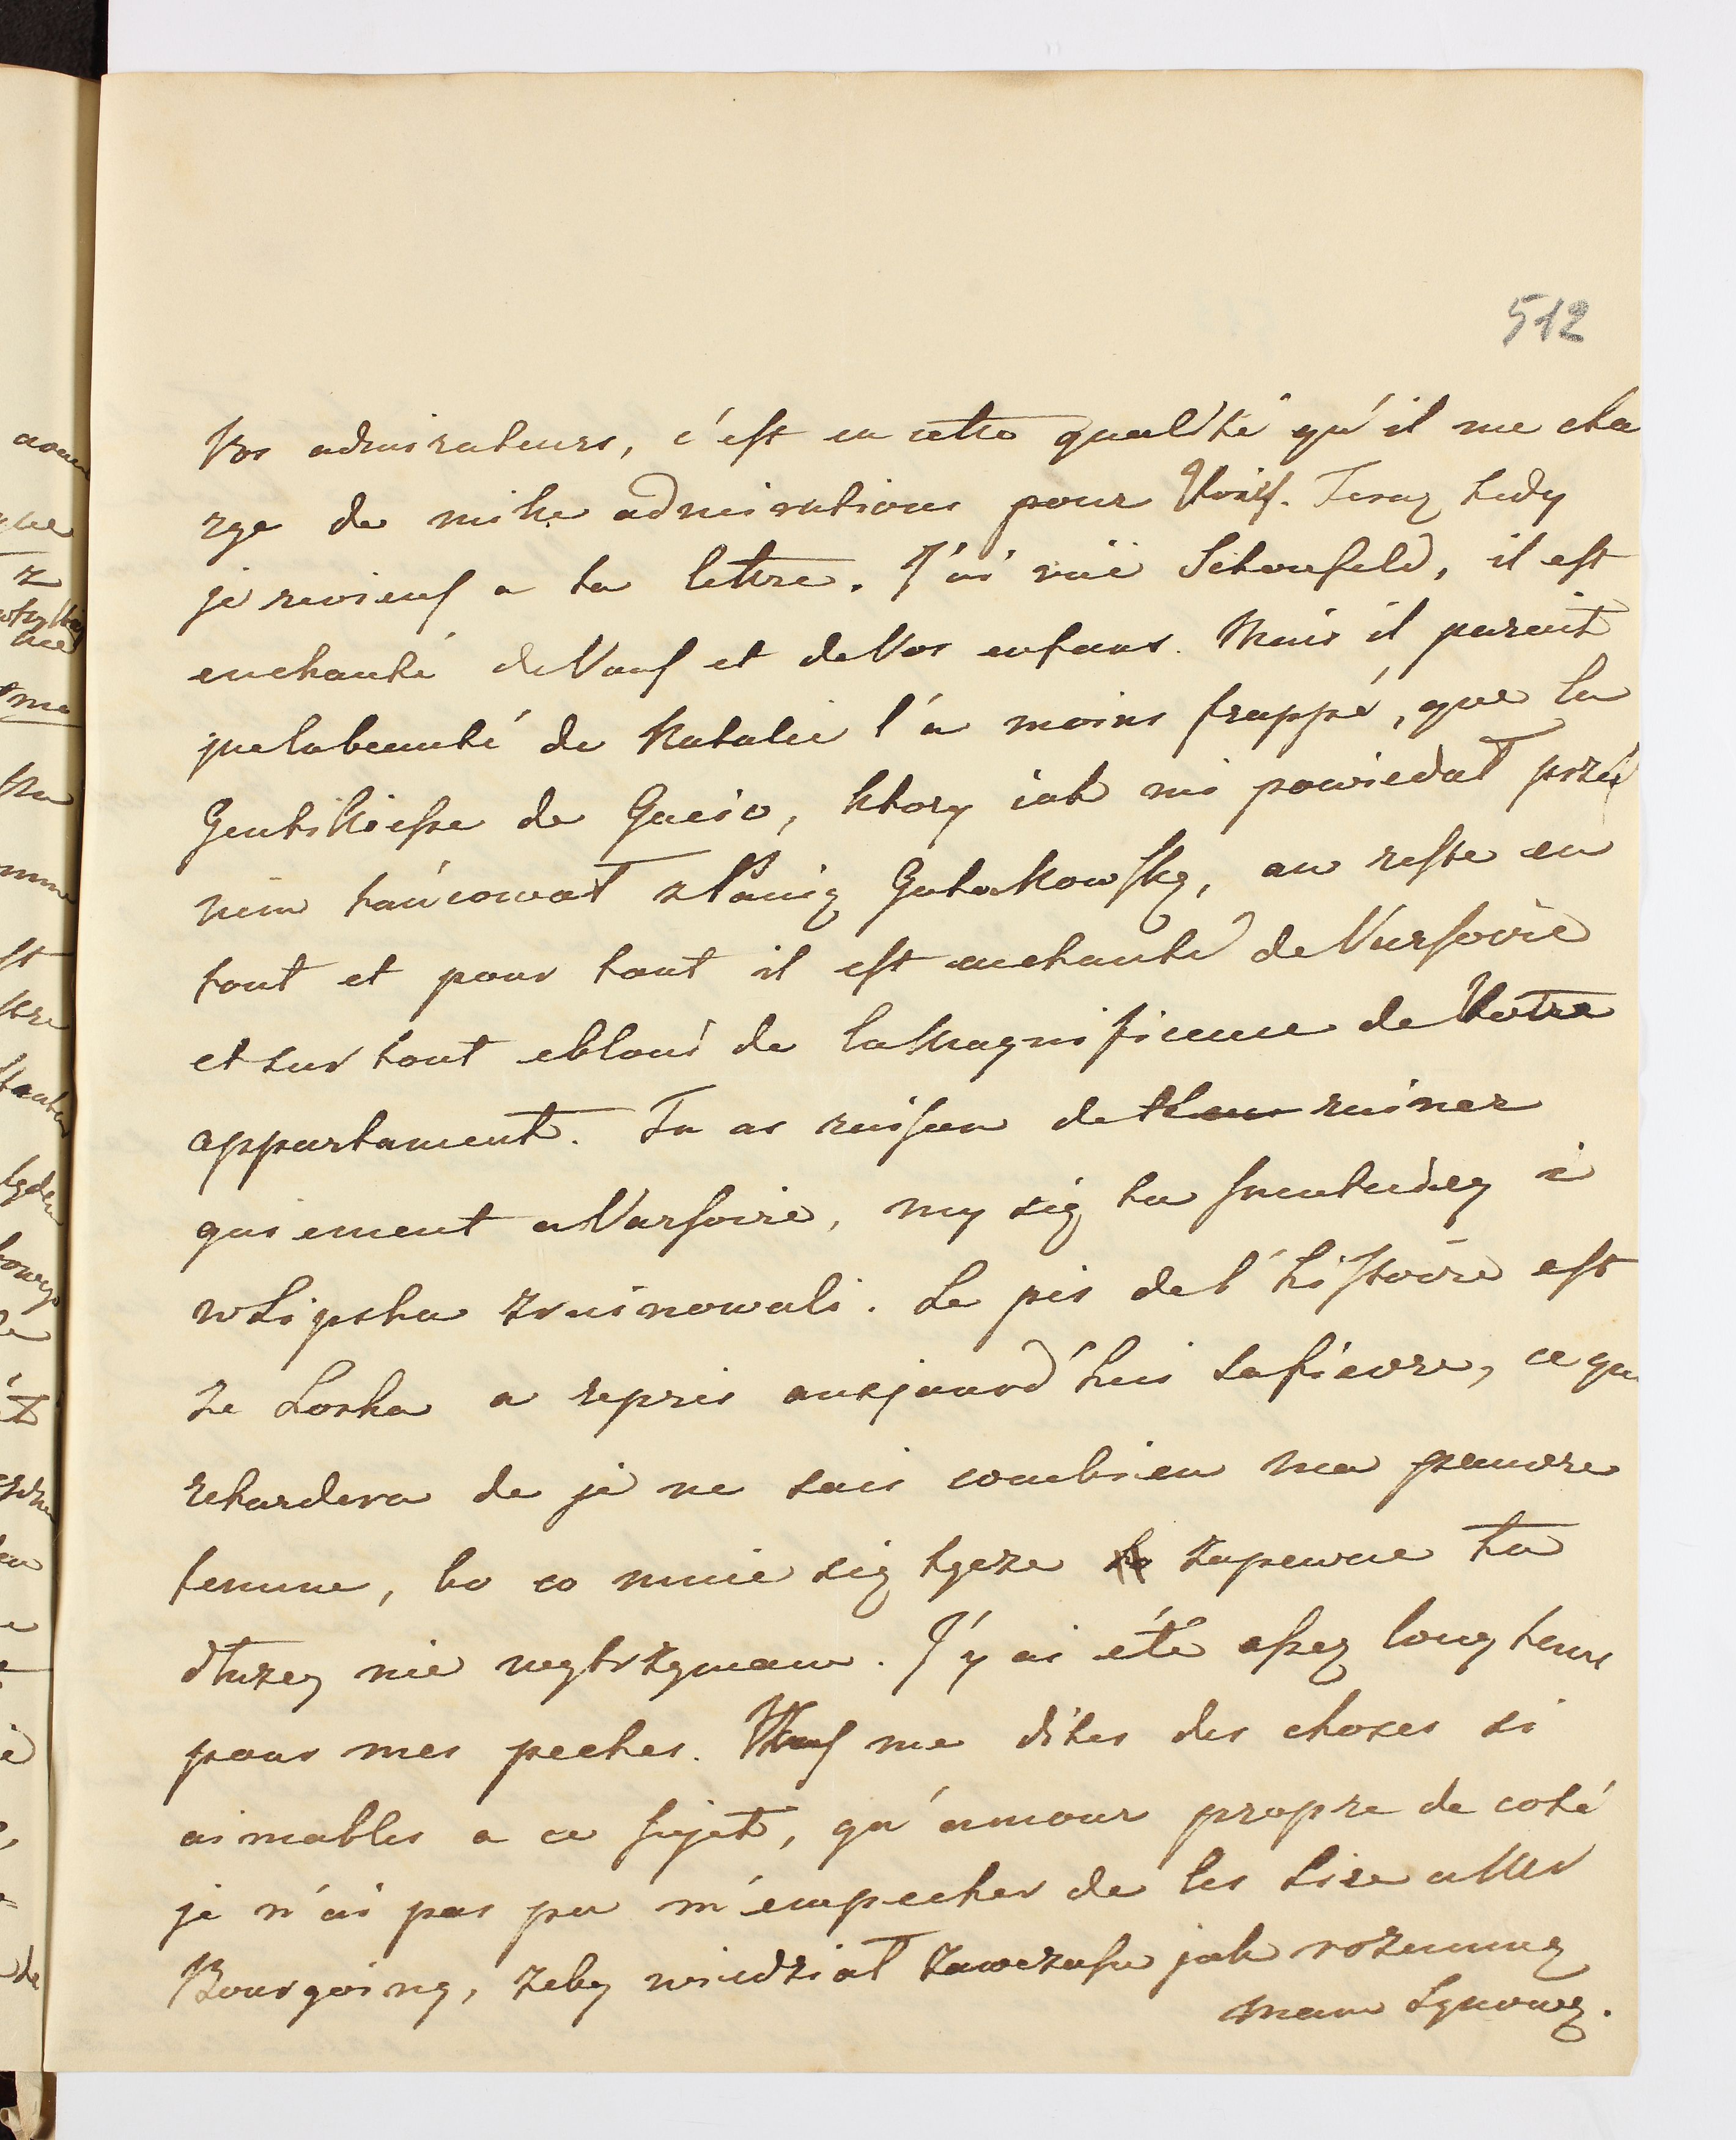 512
Vos admirateurs, c'est en cette qualité qu'il me cha
rge de mille admirations pour Vous. Teraz tedy
je reviens a ta lettre. J'ai vuë Schonfeld, il est
enchanté de Vous et de Vos enfans. Mais il parait
que la beauté de Natalie l'a moins frappé, que la
Gentillesse de Gucio, ktory iak mi powiedał przed
nim tańcował z Panią Gutakowską, au reste en
tout et pour tout il est enchanté de Varsovie
et sur tout eblouï de la Magnificence de Votre
appartament. Tu as raison de te ruiner
gaiement a Varsovie, my się tu smutniey i
w Lipsku zruinowali. Le pis de l'histoire est
ze Loska a repris aujourd'hui sa fievre, ce qui
retardera de je ne sais combien ma pauvre
femme, bo co mnie się tycze zapewne tu
dłuzey nie wytrzymam. J'y ai été assez long tems
pour mes peches. Vous me dites des choses si
aimables a ce sujet, qu'amour propre de coté
je n'ai pas pu m'empecher de les lire a Mr
Bourgoing, zeby wiedział zawczasu jak rozumną
mam Synową.